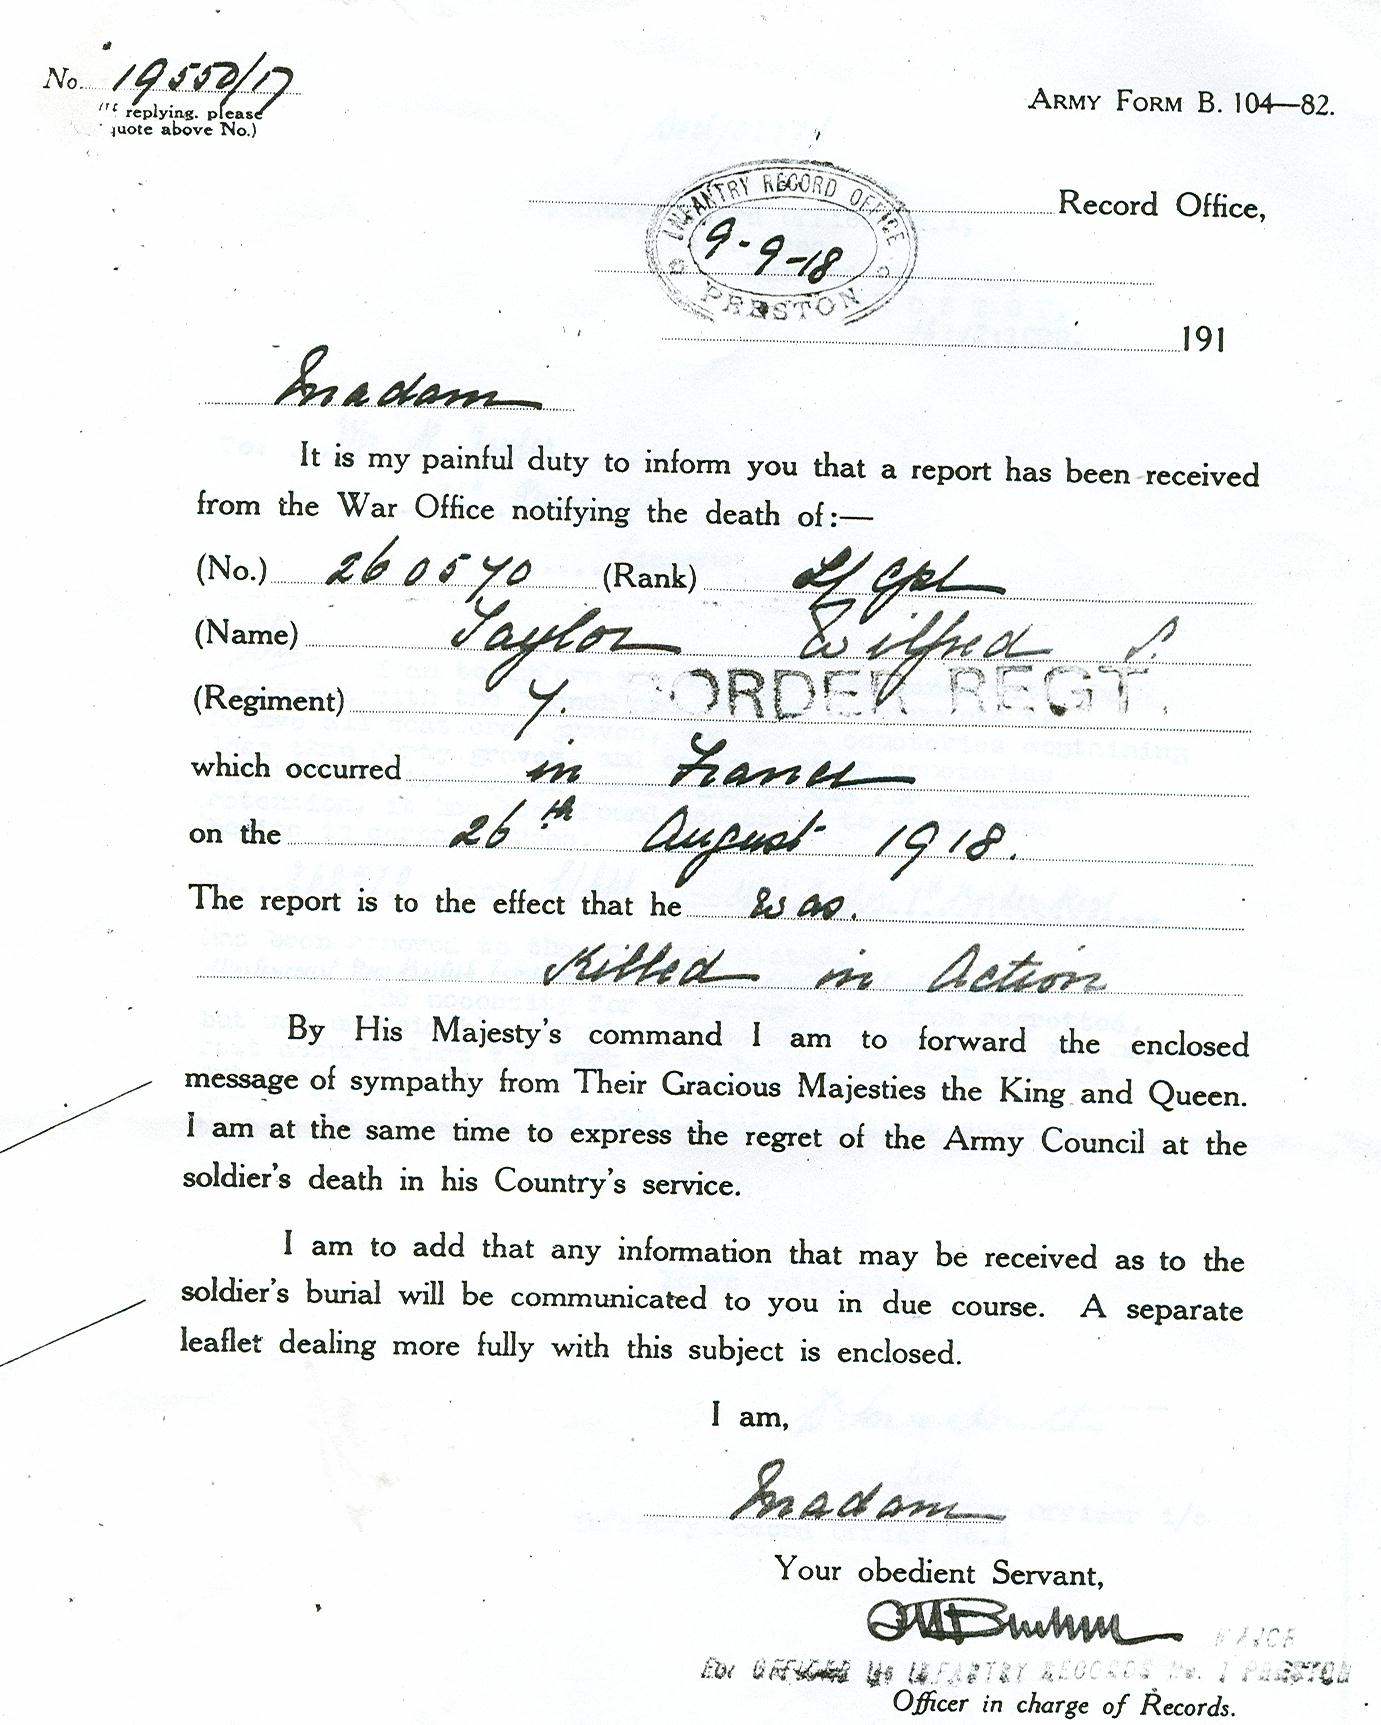 No. 19550/17
replying. please
quote above No.)
ARMY FORM B. 104—82.
Record Office,
INFANTRY RECORD OFFICE
9-9-18
PRESTON
191
Madam
It is my painful duty to inform you that a report has been received
from the War Office notifying the death of:—
(No.) 260570 (Rank) L/Cpl
(Name) Taylor Wilfred S.
(Regiment) 7. BORDER REGT.
which occurred in France
on the 26th August 1918.
The report is to the effect that he was.
Killed in Action
By His Majesty's command I am to forward the enclosed
message of sympathy from Their Gracious Majesties the King and Queen.
I am at the same time to express the regret of the Army Council at the
soldier's death in his Country's service.
I am to add that any information that may be received as to the
soldier's burial will be communicated to you in due course. A separate
leaflet dealing more fully with this subject is enclosed.
I am,
Madam
Your obedient Servant,
MAJOR
For OFFICER I/c INFANTRY RECORDS No. 1 PRESTON
Officer in charge of Records.